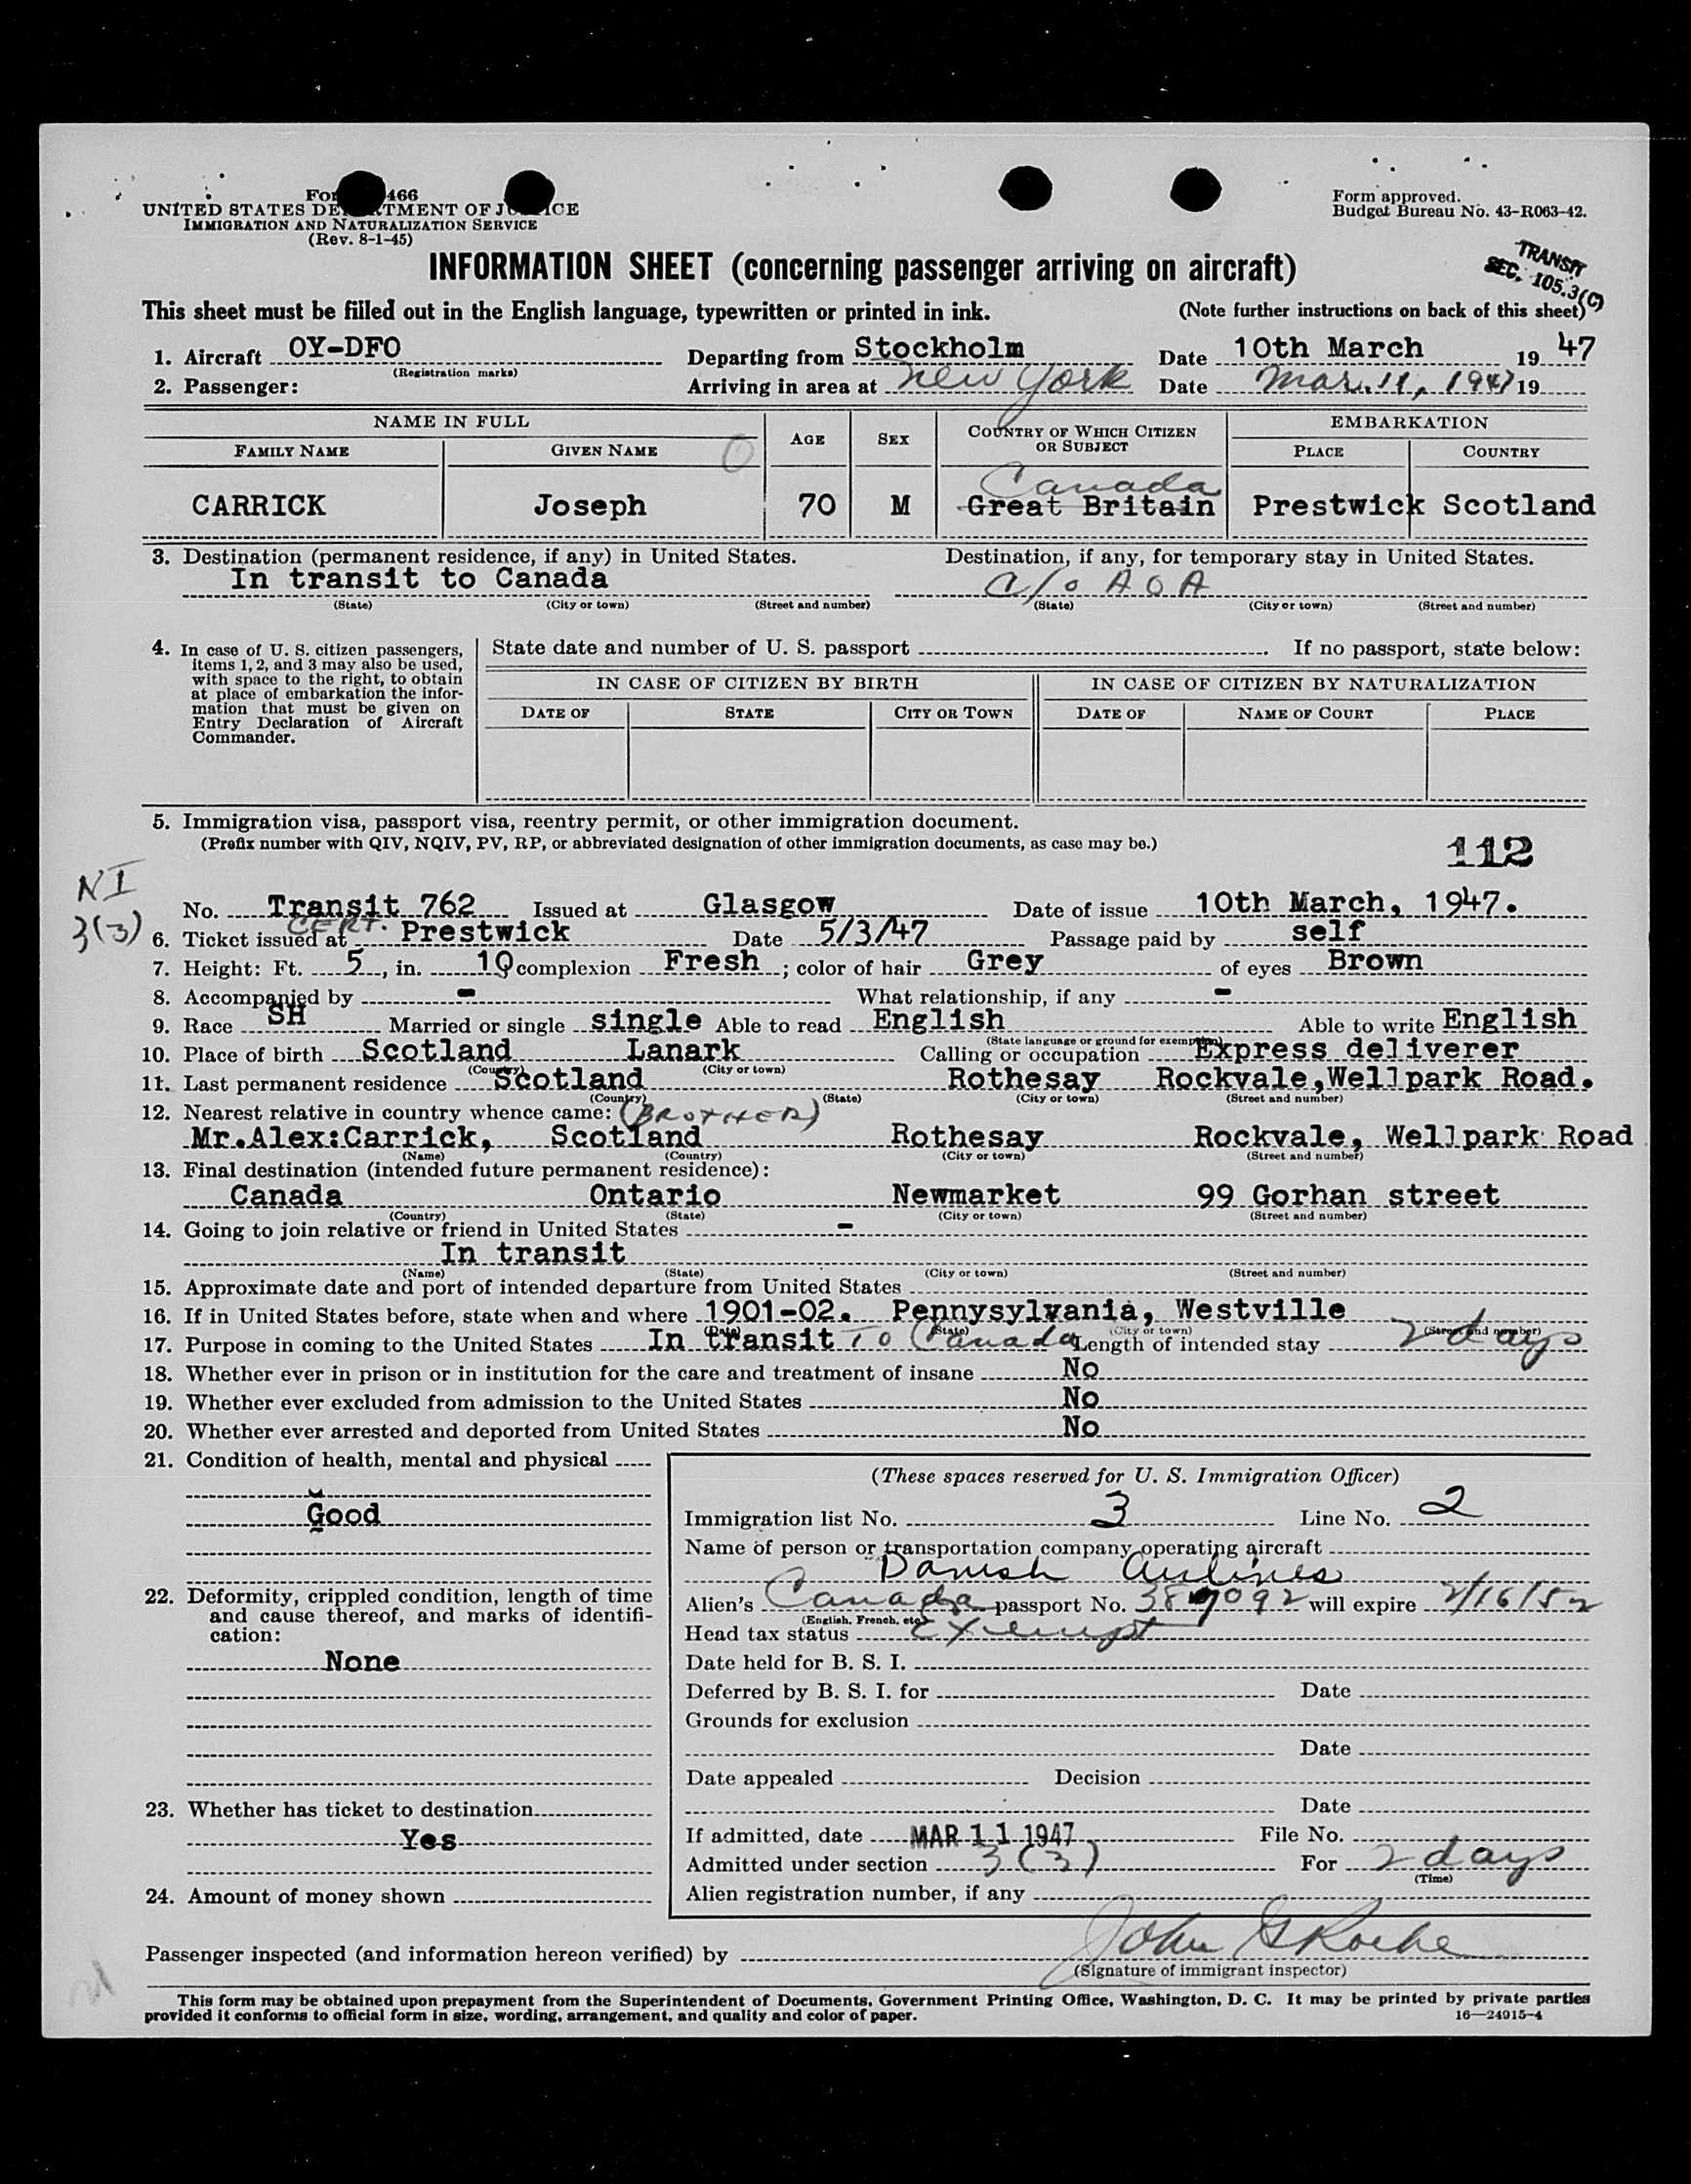 Form 466
UNITED STATES DEPARTMENT OF JUSTICE
IMMIGRATION AND NATURALIZATION SERVICE
(Rev. 8-1-45)
Form approved.
Budget Bureau No. 43-R063-42.
INFORMATION SHEET (concerning passenger arriving on aircraft)
TRANSIT
SEC. 105.3(C)
This sheet must be filled out in the English language, typewritten or printed in ink. (Note further instructions on back of this sheet)
1. Aircraft OY-DFO Departing from Stockholm Date 10th March 19 47
(Registration marks)
2. Passenger: Arriving in area at New York Date Mar. 11, 1947 19
NAME IN FULL AGE SEX COUNTRY OF WHICH CITIZEN OR SUBJECT EMBARKATION
FAMILY NAME GIVEN NAME PLACE COUNTRY
Canada
CARRICK Joseph 70 M Great Britain Prestwick Scotland
3. Destination (permanent residence, if any) in United States. Destination, if any, for temporary stay in United States.
In transit to Canada C/o A O A
(State) (City or town) (Street and number) (State) (City or town) (Street and number)
4. In case of U. S. citizen passengers, items 1, 2, and 3 may also be used, with space to the right, to obtain at place of embarkation the information that must be given on Entry Declaration of Aircraft Commander.
State date and number of U. S. passport . If no passport, state below:
IN CASE OF CITIZEN BY BIRTH IN CASE OF CITIZEN BY NATURALIZATION
DATE OF STATE CITY OR TOWN DATE OF NAME OF COURT PLACE
5. Immigration visa, passport visa, reentry permit, or other immigration document.
(Prefix number with QIV, NQIV, PV, RP, or abbreviated designation of other immigration documents, as case may be.)
112
NI
3(3)
No. Transit 762 Issued at Glasgow Date of issue 10th March, 1947.
CERT.
6. Ticket issued at Prestwick Date 5/3/47 Passage paid by self
7. Height: Ft. 5, in. 10 complexion Fresh; color of hair Grey of eyes Brown
8. Accompanied by - What relationship, if any -
9. Race SH Married or single single Able to read English Able to write English
(State language or ground for exemption)
10. Place of birth Scotland Lanark Calling or occupation Express deliverer
(Country) (City or town)
11. Last permanent residence Scotland Rothesay Rockvale,Wellpark Road.
(Country) (State) (City or town) (Street and number)
12. Nearest relative in country whence came: (BROTHER)
Mr.Alex:Carrick, Scotland Rothesay Rockvale, Wellpark Road
(Name) (Country) (City or town) (Street and number)
13. Final destination (intended future permanent residence):
Canada Ontario Newmarket 99 Gorhan street
(Country) (State) (City or town) (Street and number)
14. Going to join relative or friend in United States -
In transit
(Name) (State) (City or town) (Street and number)
15. Approximate date and port of intended departure from United States
16. If in United States before, state when and where 1901-02. Pennysylvania, Westville
(Date) (State) (City or town) (Street and number)
17. Purpose in coming to the United States In transit To Canada Length of intended stay 2 days
18. Whether ever in prison or in institution for the care and treatment of insane No
19. Whether ever excluded from admission to the United States No
20. Whether ever arrested and deported from United States No
21. Condition of health, mental and physical
Good
22. Deformity, crippled condition, length of time and cause thereof, and marks of identification:
None
23. Whether has ticket to destination
Yes
24. Amount of money shown
(These spaces reserved for U. S. Immigration Officer)
Immigration list No. 3 Line No. 2
Name of person or transportation company operating aircraft
Danish Airlines
Alien's Canada passport No. 387092 will expire 2/16/52
(English, French, etc.)
Head tax status Exempt
Date held for B. S. I.
Deferred by B. S. I. for Date
Grounds for exclusion
Date
Date appealed Decision
Date
If admitted, date MAR 11 1947 File No.
Admitted under section 3(3) For 2 days
(Time)
Alien registration number, if any
Passenger inspected (and information hereon verified) by John G Roche
(Signature of immigrant inspector)
This form may be obtained upon prepayment from the Superintendent of Documents, Government Printing Office, Washington, D. C. It may be printed by private parties
provided it conforms to official form in size, wording, arrangement, and quality and color of paper. 16—24915-4